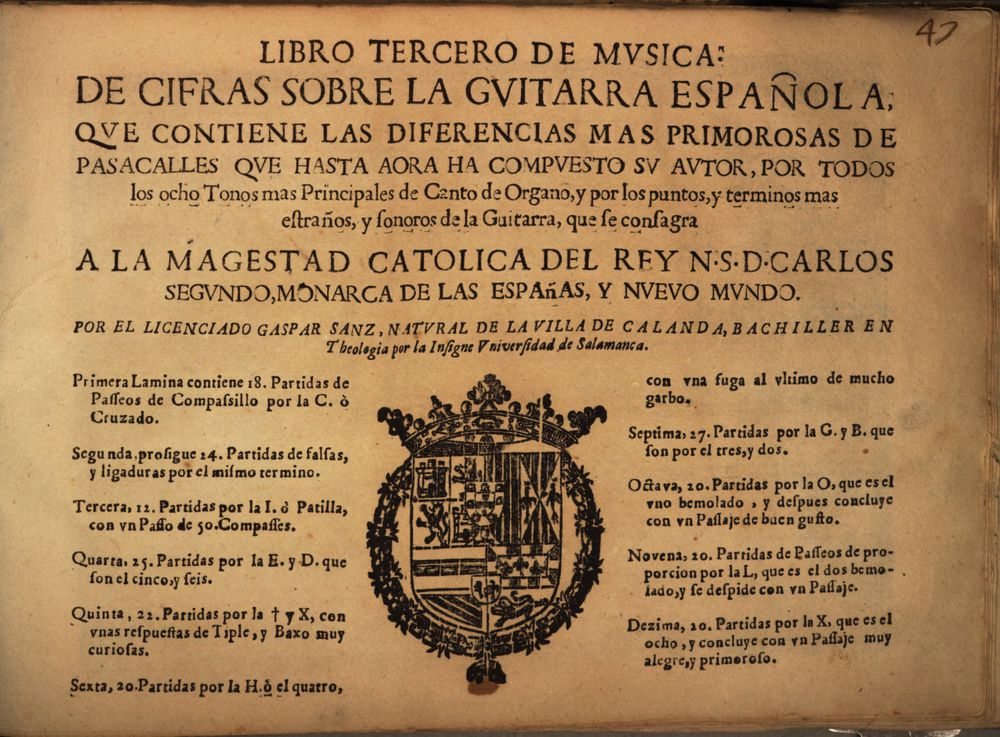 47
LIBRO TERCERO DE MVSICA:
DE CIFRAS SOBRE LA GVITARRA ESPAÑOLA,
QVE CONTIENE LAS DIFERENCIAS MAS PRIMOROSAS DE
PASACALLES QVE HASTA AORA HA COMPVESTO SV AVTOR, POR TODOS
los ocho Tonos mas Principales de Canto de Organo, y por los puntos, y terminos mas
eſtraños, y ſonoros de la Guitarra, que ſe conſagra
A LA MAGESTAD CATOLICA DEL REY N·S·D·CARLOS
SEGVNDO, MONARCA DE LAS ESPAñAS, Y NVEVO MVNDO.
POR EL LICENCIADO GASPAR SANZ, NATVRAL DE LA VILLA DE CALANDA, BACHILLER EN
Theologia por la Inſigne Vniverſidad de Salamanca.
Primera Lamina contiene 18. Partidas de
Paſſeos de Compaſsillo por la C. ò
Cruzado.
Segunda, proſigue 24. Partidas de falſas,
y ligaduras por el miſmo termino.
Tercera, 12. Partidas por la I. ò Patilla,
con vn Paſſo de 50. Compaſſes.
Quarta, 25. Partidas por la E. y D. que
ſon el cinco, y ſeis.
Quinta, 22. Partidas por la † y X, con
vnas reſpueſtas de Tiple, y Baxo muy
curioſas.
Sexta, 20. Partidas por la H. ò el quatro,
con vna fuga al vltimo de mucho
garbo.
Septima, 27. Partidas por la G. y B. que
ſon por el tres, y dos.
Octava, 20. Partidas por la O, que es el
vno bemolado, y deſpues concluye
con vn Paſſaje de buen guſto.
Novena, 20. Partidas de Paſſeos de pro-
porcion por la L, que es el dos bemo-
lado, y ſe deſpide con vn Paſſaje.
Dezima, 20. Partidas por la X, que es el
ocho, y concluye con vn Paſſaje muy
alegre, y primoroſo.